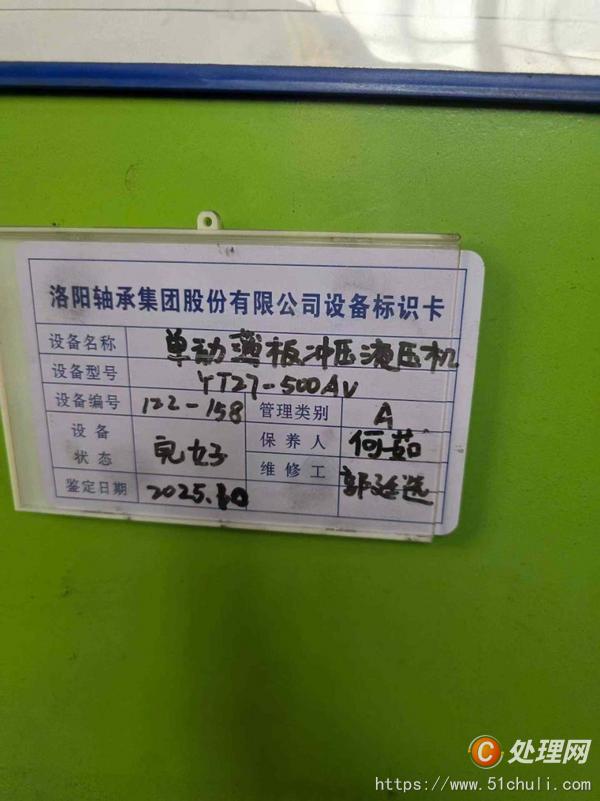 洛阳轴承集团股份有限公司设备标识卡
设备名称 单动薄板冲压液压机
设备型号 YT27-500AV
设备编号 122-158 管理类别 A
设备状态 完好 保养人 何茹
维修工 郭延选
鉴定日期 2025.10
C 处理网
https://www.51chuli.com